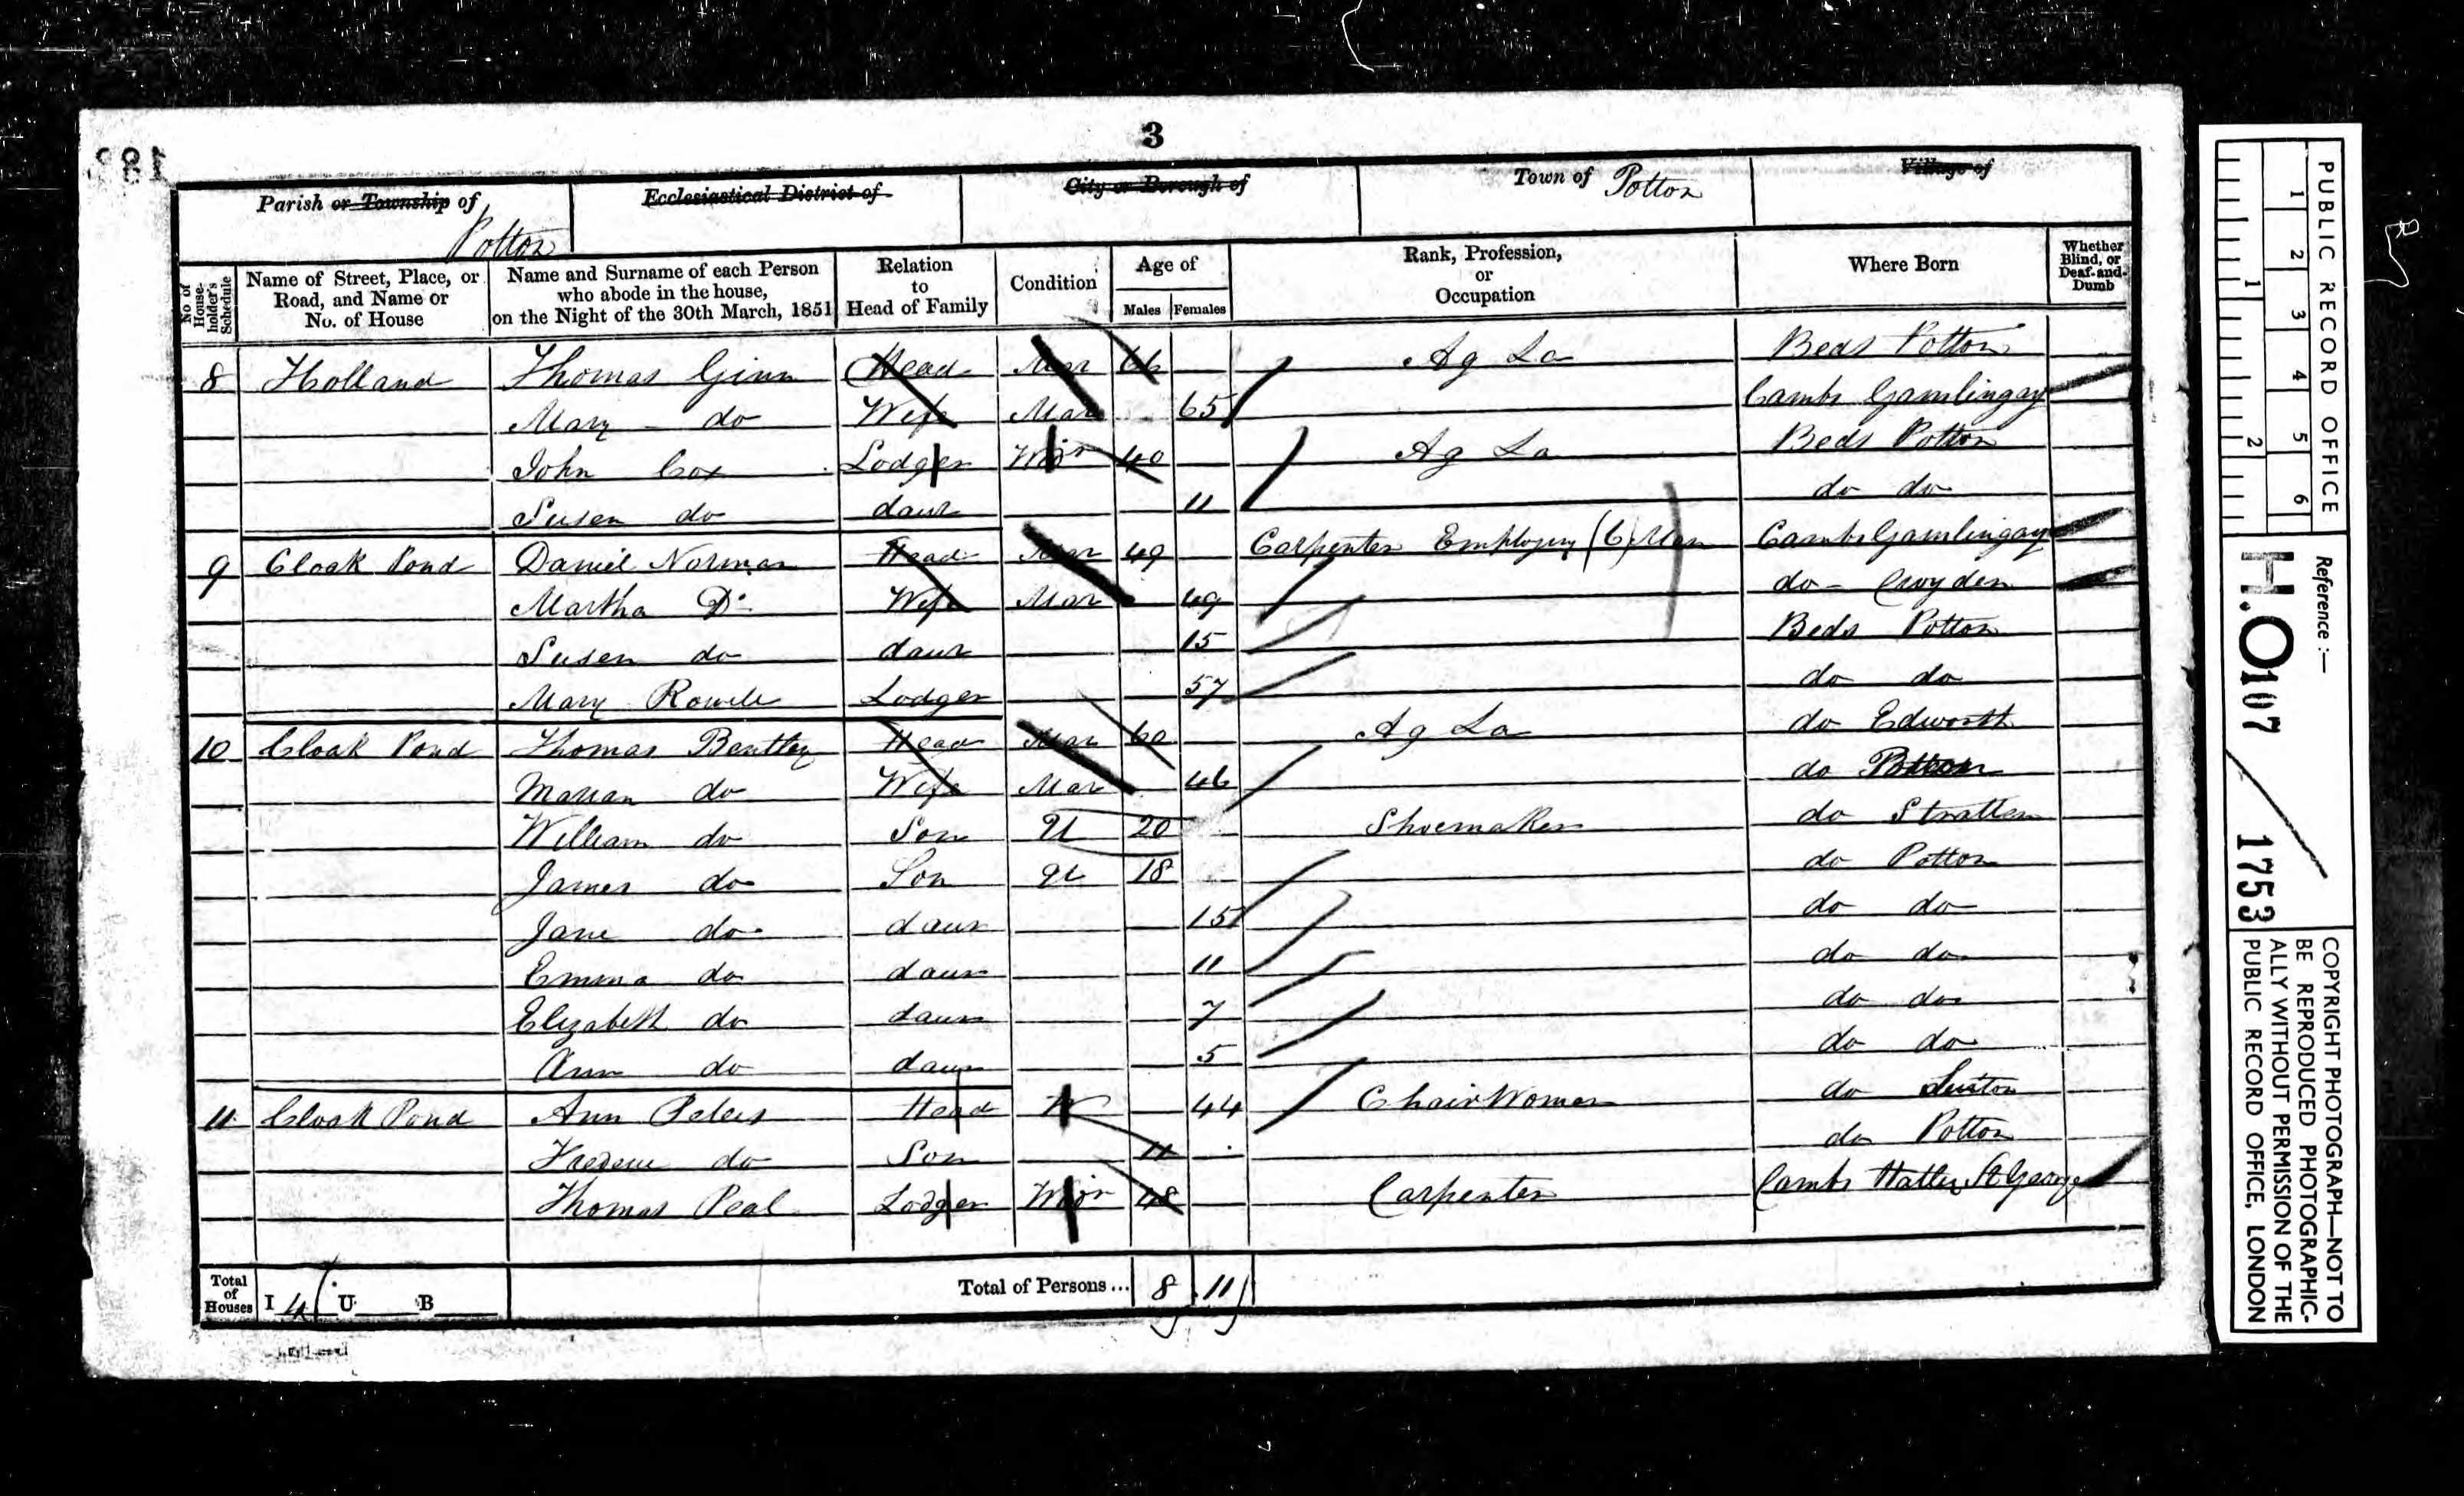 3
Parish or Township of Potton
Ecclesiastical District of
City or Borough of
Town of Potton
Village of
No of House-holder's Schedule
Name of Street, Place, or Road, and Name or No. of House
Name and Surname of each Person who abode in the house, on the Night of the 30th March, 1851
Relation to Head of Family
Condition
Age of
Males Females
Rank, Profession, or Occupation
Where Born
Whether Blind, or Deaf-and-Dumb
8 Holland Thomas Ginn Head Mar 66 Ag La Beds Potton
Mary do Wife Mar 65 Cambs Gamlingay
John Cox Lodger Widr 40 Ag La Beds Potton
Susen do daur 11 do do
9 Cloak Pond Daniel Norman Head Mar 49 Carpenter Employing (6) Men Cambs Gamlingay
Martha Do Wife Mar 49 do Croyden
Susen do daur 15 Beds Potton
Mary Rowell Lodger 57 do do
10 Cloak Pond Thomas Bentley Head Mar 60 Ag La do Edworth
Marian do Wife Mar 46 do Potton
William do Son U 20 Shoemaker do Stratton
James do Son U 18 do Potton
Jane do daur 15 do do
Emma do daur 11 do do
Elizabeth do daur 7 do do
Ann do daur 5 do do
11 Cloak Pond Ann Peters Head W 44 ChairWoman do Sutton
do Son 11 do Potton
Thomas Peal Lodger Widr 48 Carpenter Cambs Hatley St George
Total of Houses I 4 U B
Total of Persons... 8 11
PUBLIC RECORD OFFICE
1 2 3 4 5 6
1 2
Reference :-
H.O 107 / 1753
COPYRIGHT PHOTOGRAPH—NOT TO
BE REPRODUCED PHOTOGRAPHIC-
ALLY WITHOUT PERMISSION OF THE
PUBLIC RECORD OFFICE, LONDON